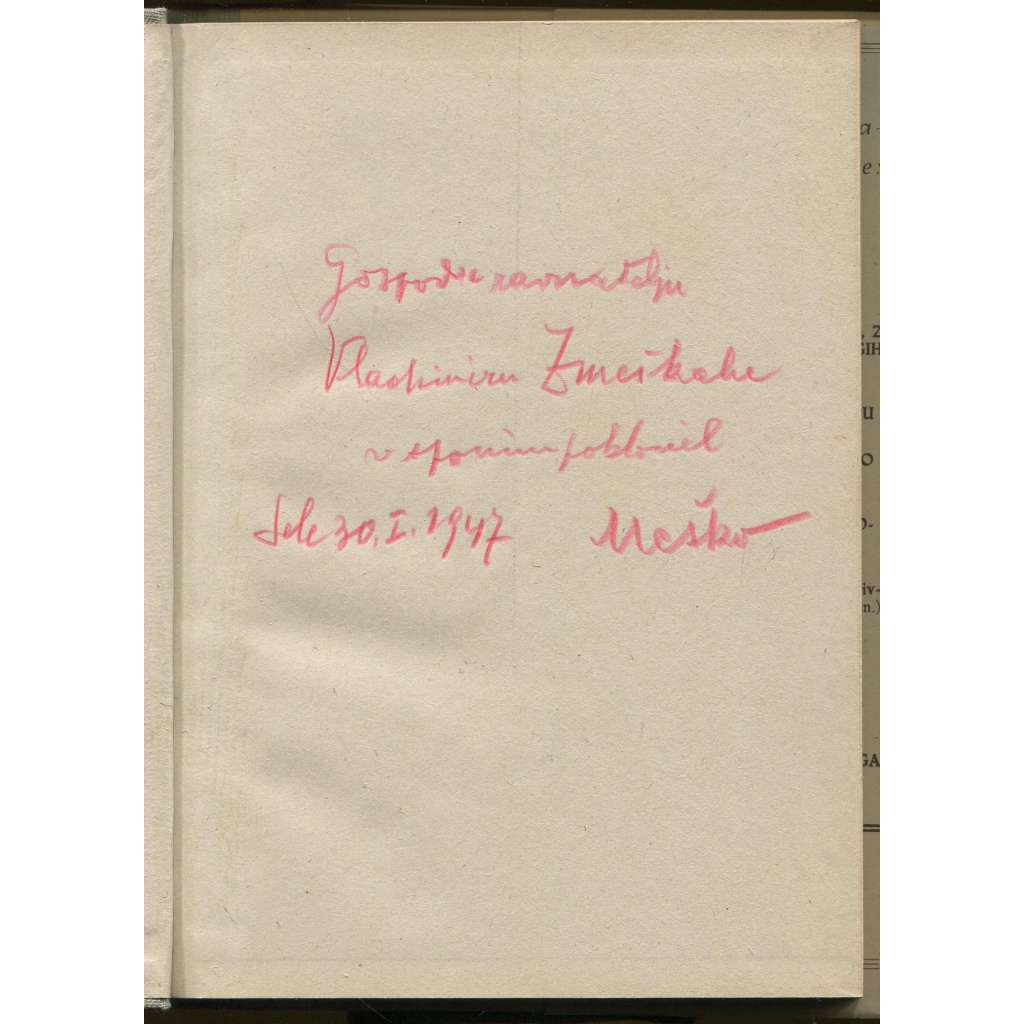 Gospodu ravnatelju
Vladimiru Zmeškalu
v spomin poklonil
Sele 30. I. 1947 Meško
a
e
, 2
GIH
u
O
iv-
n.)
GA